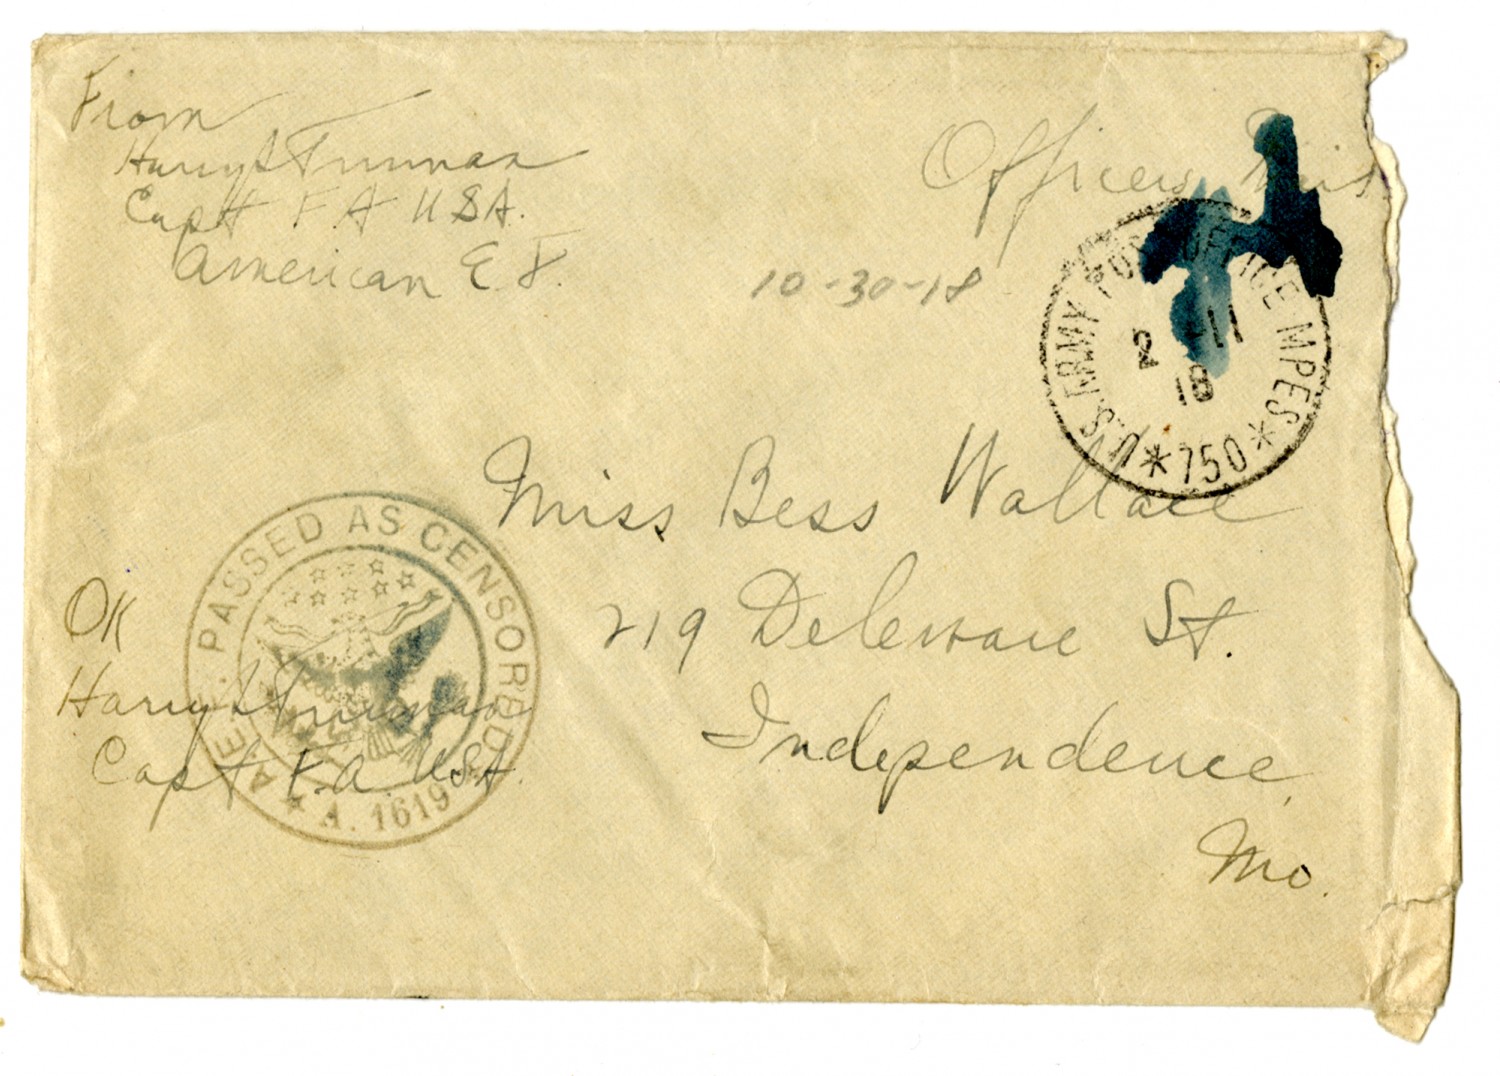 From
Harry S Truman
Capt F A USA.
American E F.
Officers Mail
10-30-18
U.S. ARMY POST OFFICE MPES
* 750 *
2 -11
18
Miss Bess Wallace
219 Delaware St.
Independence,
Mo.
A.E.F. PASSED AS CENSORED
* A. 1619 *
OK
Harry S Truman
Capt F.A. USA.